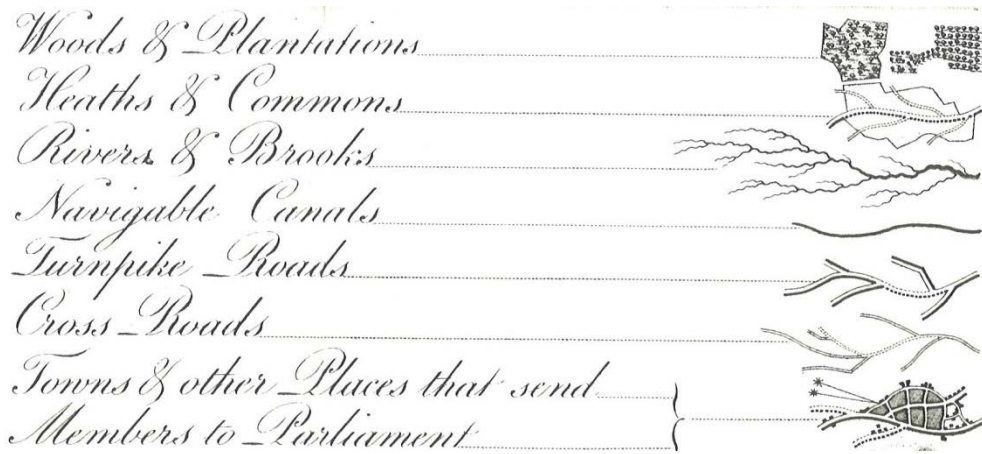 Woods & Plantations
Heaths & Commons
Rivers & Brooks
Navigable Canals
Turnpike Roads
Cross Roads
Towns & other Places that send
Members to Parliament